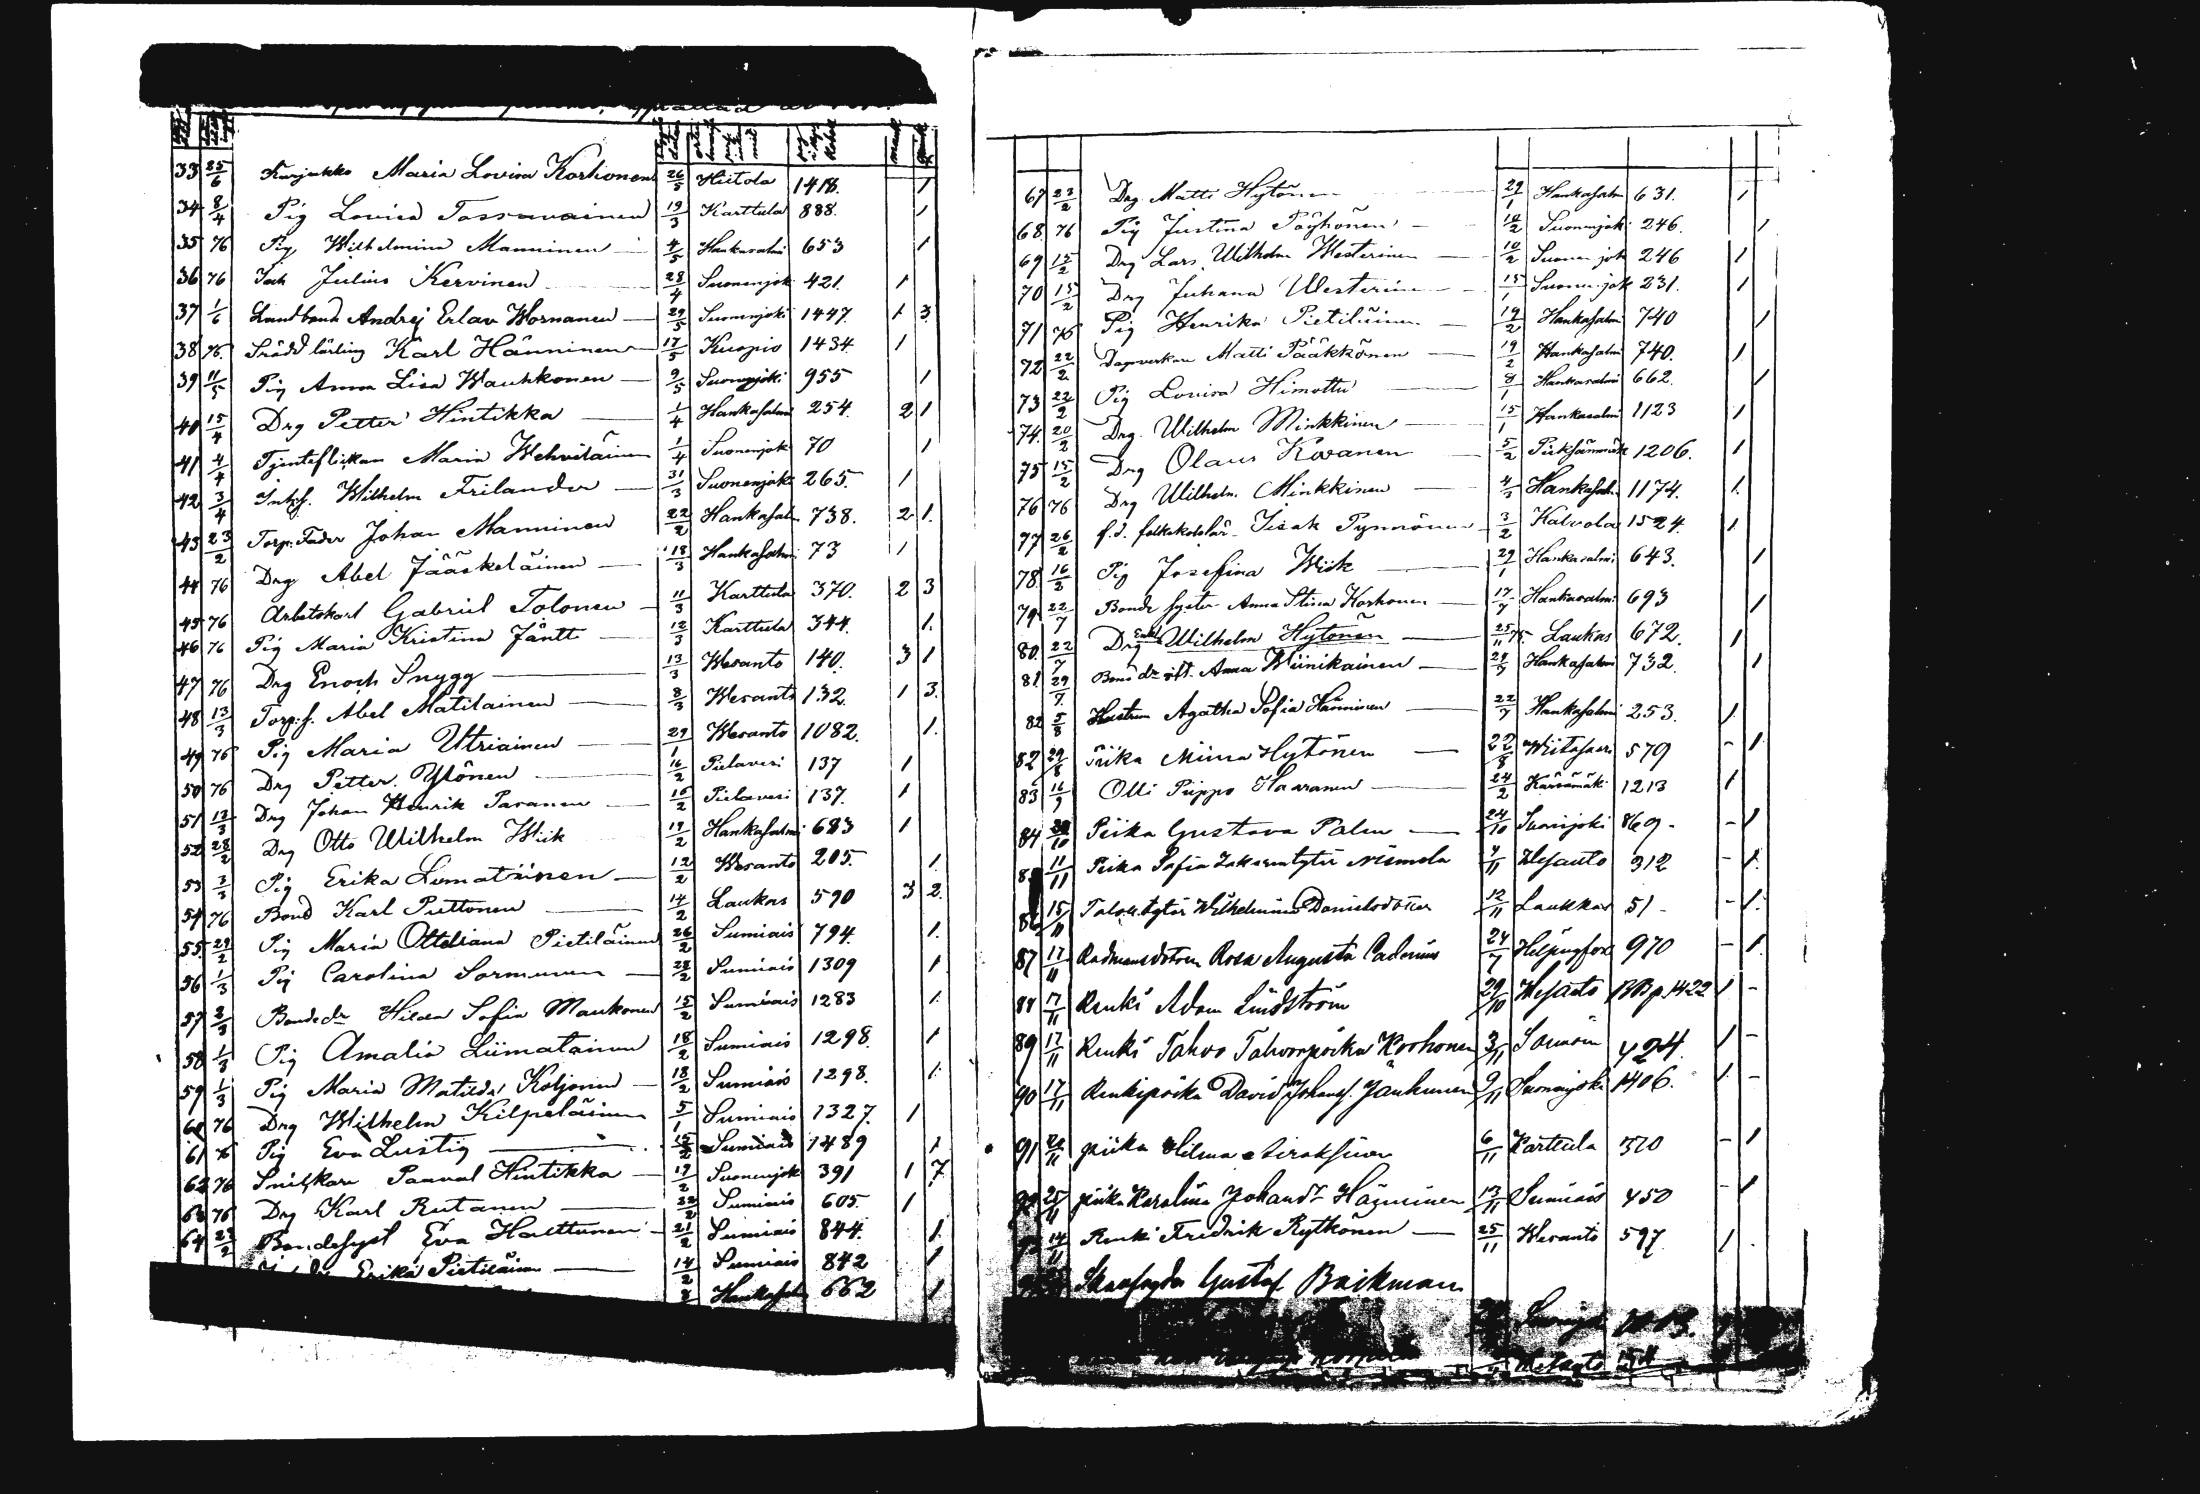 33 25/6 Karjakko Maria Lovisa Korhonen 26/5 Hiitola 1418. 1
34 8/4 Pig Lovisa Tossavainen 19/3 Karttula 888. 1
35 76 Pig Wilhelmina Manninen 4/5 Hankasalmi 653 1
36 76 Julius Kervinen 28/4 Suonenjoki 421. 1
37 1/6 Landbonde Andrej Erlav Wornanen 29/5 Suonenjoki 1447. 1 3
38 76. Karl Hänninen 17/5 Kuopio 1434. 1
39 11/5 Pig Anna Lisa Wauhkonen 9/5 Suonenjoki 955 1
40 15/4 Drg Petter Hintikka 1/4 Hankasalmi 254. 2 1
41 4/4 Tjenteflickan Maria Wehviläinen 1/4 Suonenjoki 70 1
42 3/4 Inh.s. Wilhelm Frilander 31/3 Suonenjoki 265. 1
43 23/2 Torp. Fader Johan Manninen 22/2 Hankasalmi 738. 2 1.
44 76 Drg Abel Jääskeläinen 18/3 Hankasalmi 73 1
45 76 Arbetskarl Gabriel Tolonen 11/3 Karttula 370. 2 3
46 76 Pig Maria Kristina Jäntti 12/3 Karttula 344. 1.
47 76 Drg Enoch Snygg 13/3 Wesanto 140. 3 1
48 13/3 Torp.s. Abel Matilainen 8/3 Wesanto 132. 1 3.
49 76 Pig Maria Utriainen 29/1 Wesanto 1082. 1.
50 76 Drg Petter Ylönen 16/2 Pielavesi 137 1
51 13/3 Drg Johan Henrik Pasanen 16/2 Pielavesi 137. 1
52 28/2 Drg Otto Wilhelm Wiik 19/2 Hankasalmi 683 1
53 3/3 Pig Erika Liimatainen 12/2 Wesanto 205. 1.
54 76 Bond Karl Puttonen 14/2 Laukas 590 3 2.
55. 29/2 Pig Maria Ottiliana Pietiläinen 26/2 Sumiais 794. 1.
56 1/3 Pig Carolina Sormunen 28/2 Sumiais 1309 1
57 2/3 Bondedr Hilda Sofia Maukonen 15/2 Sumiais 1283 1.
58 1/3 Pig Amalia Liimatainen 18/2 Sumiais 1298. 1
59 1/3 Pig Maria Matilda Koljonen 18/2 Sumiais 1298. 1.
60 76 Drg Wilhelm Kilpeläinen 5/1 Sumiais 1327. 1
61 76 Pig Eva Lustig 15/2 Sumiais 1489 1
62 76 Snickare Paaval Hintikka 19/2 Suonenjoki 391 1 7.
63 76 Drg Karl Rutanen 22/2 Sumiais 605. 1
64 29/2 Bondesyst Eva Harttunen 21/2 Sumiais 844. 1.
Erika Pietiläinen 14/2 Sumiais 842 1
Hankasalmi 662 1
67 23/2 Drg Matti Hytönen 29/1 Hankasalmi 631. 1
68. 76 Pig Justina Pöyhönen 10/2 Suonenjoki 246. 1
69 15/2 Drg Lars Wilhelm Westerinen 10/2 Suonenjoki 246 1
70 15/2 Drg Juhana Westerinen 15/1 Suonenjoki 231. 1
71 76 Pig Henrika Pietiläinen 19/2 Hankasalmi 740 1
72 22/2 Dagsverkare Matti Pääkkönen 19/2 Hankasalmi 740. 1
73 22/2 Pig Lovisa Himottu 8/1 Hankasalmi 662. 1
74. 20/2 Drg Wilhelm Minkkinen 15/1 Hankasalmi 1123 1
75 15/2 Drg Olaus Kovanen 5/2 Pieksämäki 1206. 1
76 76 Drg Wilhelm Minkkinen 4/3 Hankasalmi 1174. 1.
77 26/2 f.d. folkskolelär. Isak Pynnönen 3/2 Kalvola 1524. 1
78 16/2 Pig Josefina Wiik 29/1 Hankasalmi 643. 1
79 22/7 Bonde syster Anna Stina Korhonen 17/7 Hankasalmi 693 1
80. 22/7 Drg Enkl. Wilhelm Hytönen 25/11 75. Laukas 672. 1
81 29/7 Anna Wiinikainen 24/7 Hankasalmi 732. 1
82 5/8 Hustrun Agatha Sofia Hänninen 22/7 Hankasalmi 253. 1
82 29/8 Piika Miina Hytönen 22/8 Wiitasaari 579 - 1.
83 16/9 Olli Piippo Haaranen 24/2 Kärsämäki 1213 1
84 Piika Gustava Palm 24/10 Suonnjoki 869 - - 1
85 11/11 Piika Sofia Sakariantytär Niemelä 4/11 Wesanto 312 - 1.
86 15/11 Talok.tytär Wilhelmina Danielsdotter 12/11 Laukkas 51 - - 1.
87 17/11 Rådmansdottern Rosa Augusta Cadenius 24/7 Helsingfors 970 - 1.
88 17/11 Renki Adam Lindström 29/10 Wesanto BBp.1422 1 -
89 17/11 Renki Tahvo Tahvonpoika Korhonen 3/11 424. 1 -
90 17/11 Renkipoika David Johans. Jauhunen 9/11 Suonnjoki 1406. 1. -
91 20/11 piika Hilma 6/11 Karttula 370 - 1
92 25/11 piika Karolina Johansdr Häyninen 13/11 Sumiais 450 - 1
14/11 Renki Fredrik Rytkönen 25/11 Wesanto 597. 1 .
Gustaf Backman